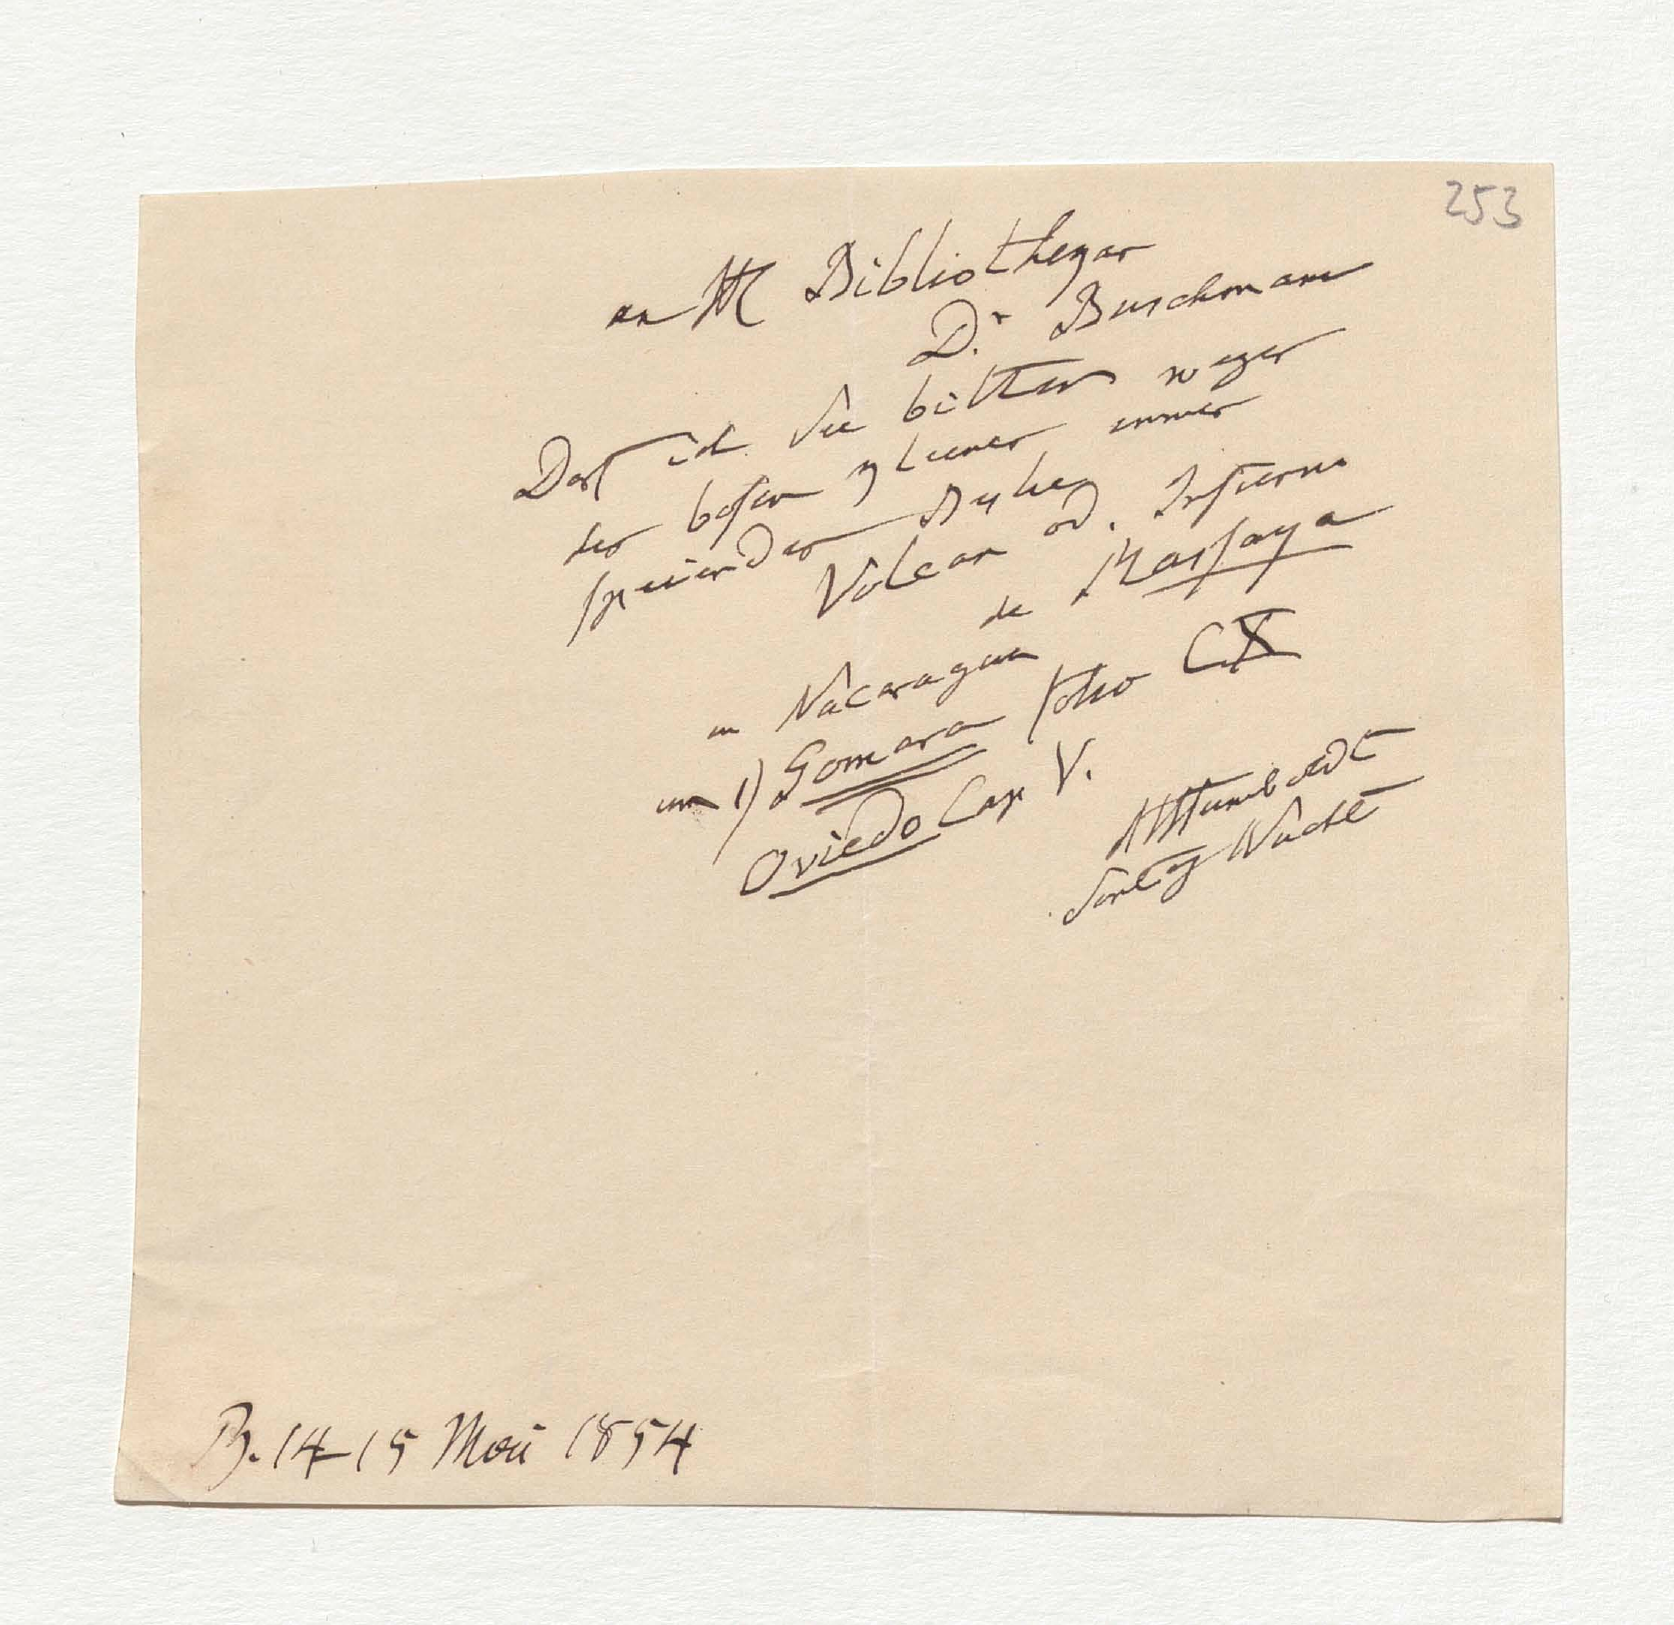 253
an H Bibliothegar
Dr. Buschmann
Darf ich Sie bitten wegen
des bösen immer
speienden Berges
Volcan od. Infierno
de Massaya
in Nicaragua
um 1) Gomara folio CX
Oviedo Cap V.
AHumboldt
Sontag Nacht
B. 14-15 Mai 1854